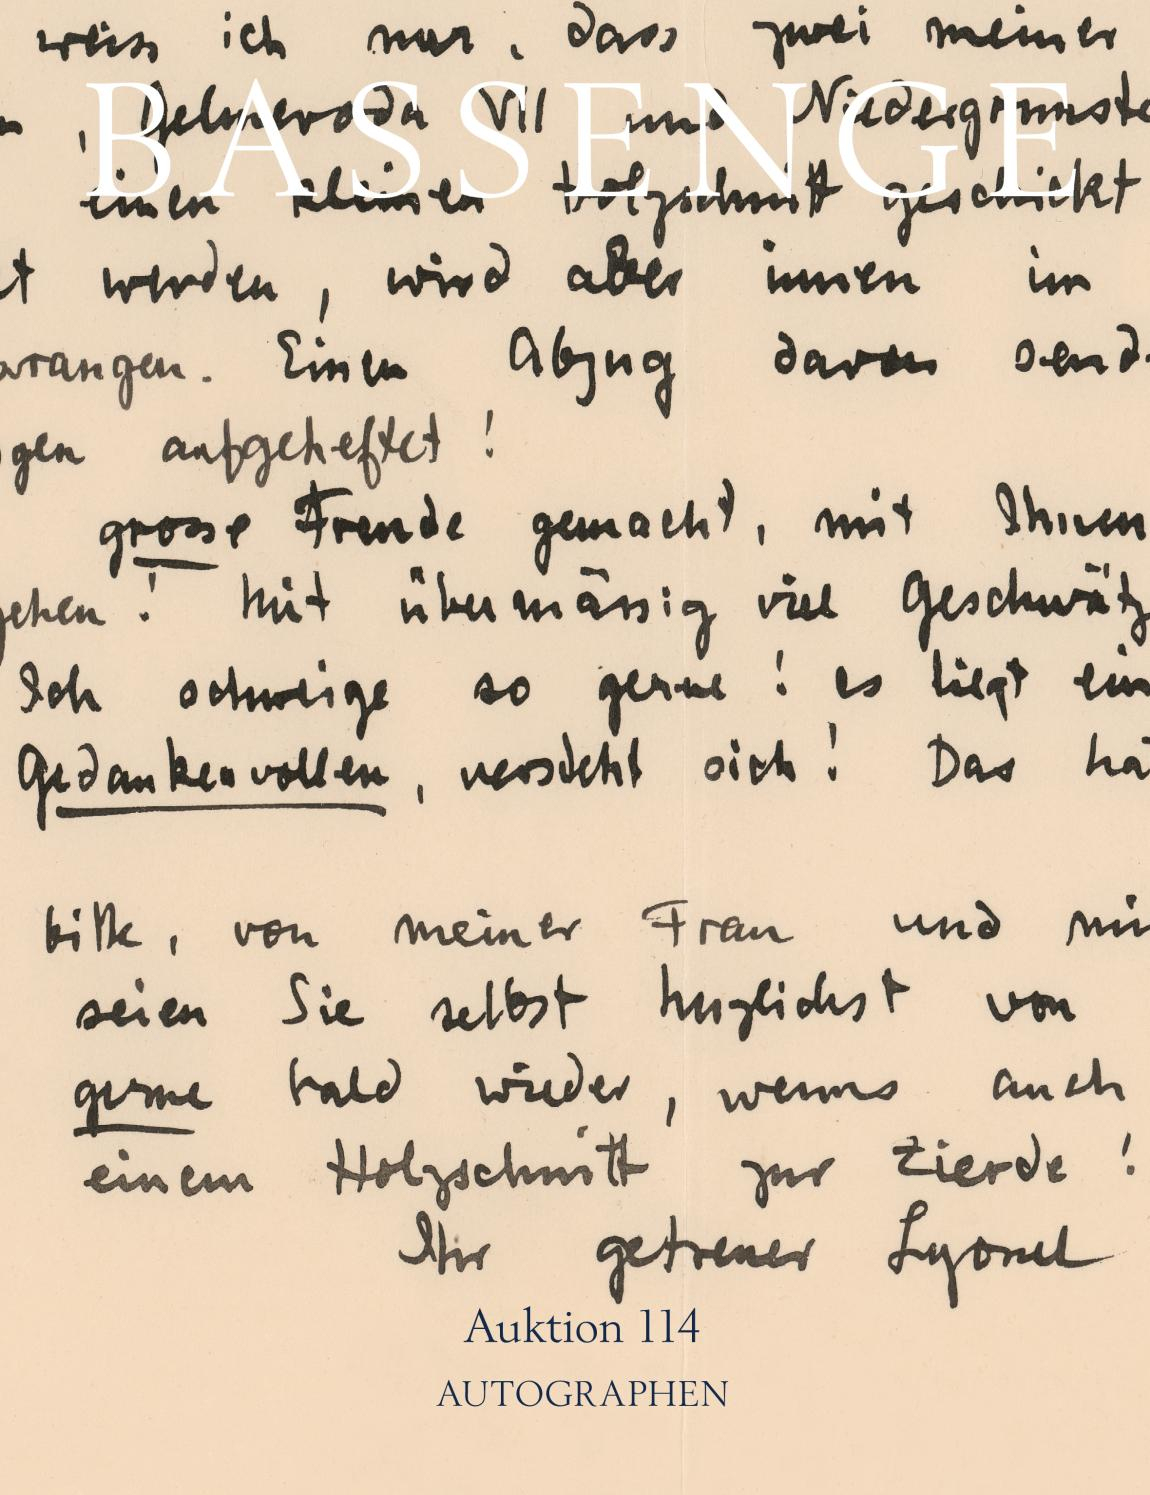 weiss ich nur, dass zwei meiner
BASSENGE
, Gelmeroda VII und Niedergrunste
einen kleinen Holzschnitt geschickt
t werden, wird aber innen im
rangen. Einen Abzug davon send
gen aufgeheftet!
grosse Freude gemacht, mit Ihnen
gehen! Mit übermässig viel Geschwätz
Ich schweige so gerne! es liegt ein
Gedankenvollen, versteht sich! Das hä
bitte, von meiner Frau und mi
seien Sie selbst herzlichst von
gerne bald wieder, wenns auch
einem Holzschnitt zur Zierde!
Ihr getreuer Lyonel
Auktion 114
AUTOGRAPHEN